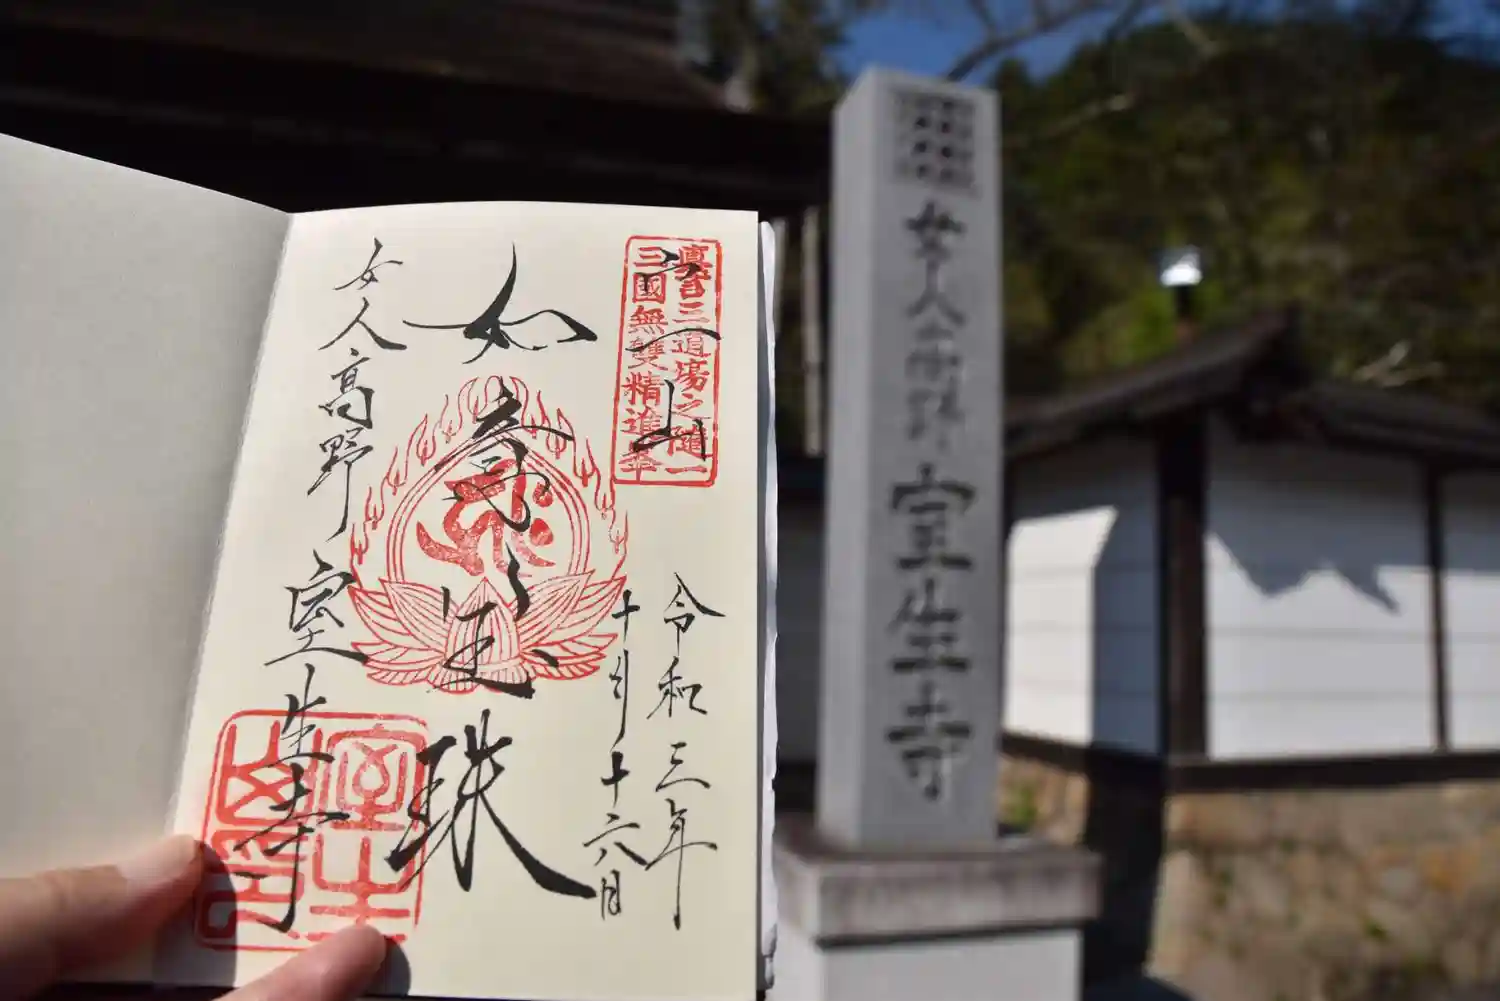 眞言三道場之随一
三國無雙精進峯
宀一山
令和三年
十月十六日
如意宝珠
女人高野 室生寺
室生
山印
女人高野 室生寺